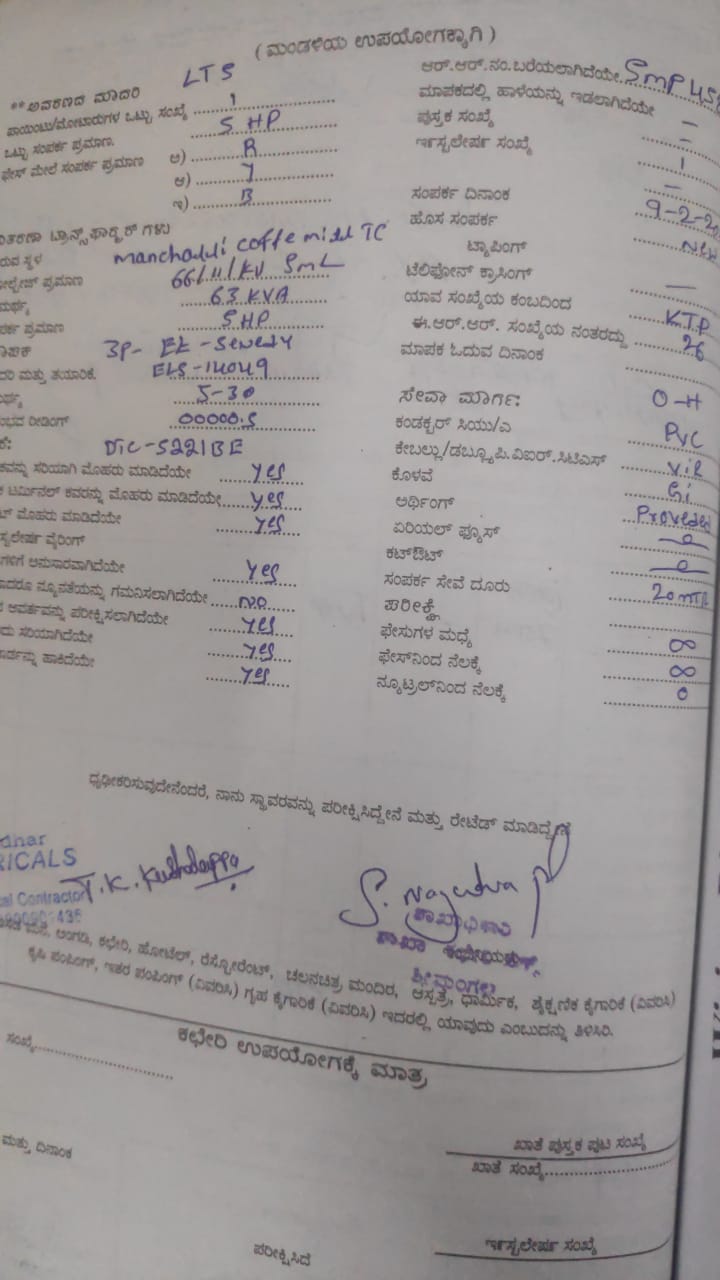 ( ಮಂಡಳಿಯ ಉಪಯೋಗಕ್ಕಾಗಿ )
**ಅವಕರಣದ ಮಾದರಿ LT5
ಪಾಯಿಂಟು/ಮೋಟಾರುಗಳ ಒಟ್ಟು ಸಂಖ್ಯೆ 1
ಒಟ್ಟು ಸಂಪರ್ಕ ಪ್ರಮಾಣ. 5 HP
ಫೇಸ್ ಮೇಲೆ ಸಂಪರ್ಕ ಪ್ರಮಾಣ ಅ) R
ಆ) Y
ಇ) B
ಟ್ರಾನ್ಸ್‌ಫಾರ್ಮರ್ ಗಳು
ರುವ ಸ್ಥಳ coffe mill TC
ಪ್ರಮಾಣ 66/11/KV SML
63 KVA
ಪರ್ಕ ಪ್ರಮಾಣ 5HP
3P-
ಮತ್ತು ತಯಾರಿಕೆ. ELS-14049
5-30
ರೀಡಿಂಗ್ 00000.5
DIC-5221BE
ಕವನ್ನು ಸರಿಯಾಗಿ ಮೊಹರು ಮಾಡಿದೆಯೇ yes
ಟರ್ಮಿನಲ್ ಕವರನ್ನು ಮೊಹರು ಮಾಡಿದೆಯೇ yes
ಮೊಹರು ಮಾಡಿದೆಯೇ yes
ವೈರಿಂಗ್
ಗಳಿಗೆ ಅನುಸಾರವಾಗಿದೆಯೇ yes
ನ್ಯೂನತೆಯನ್ನು ಗಮನಿಸಲಾಗಿದೆಯೇ no
ಆವರ್ತವನ್ನು ಪರೀಕ್ಷಿಸಲಾಗಿದೆಯೇ yes
ಸರಿಯಾಗಿದೆಯೇ yes
ಹಾಕಿದೆಯೇ yes
ಆರ್.ಆರ್.ನಂ.ಬರೆಯಲಾಗಿದೆಯೇ SMP
ಮಾಪಕದಲ್ಲಿ ಹಾಳೆಯನ್ನು ಇಡಲಾಗಿದೆಯೇ –
ಪುಸ್ತಕ ಸಂಖ್ಯೆ –
ಸಂಖ್ಯೆ 1
–
ಸಂಪರ್ಕ ದಿನಾಂಕ 9-2-2
ಹೊಸ ಸಂಪರ್ಕ New
ಟ್ಯಾಪಿಂಗ್
ಟೆಲಿಫೋನ್ ಕ್ರಾಸಿಂಗ್ —
ಯಾವ ಸಂಖ್ಯೆಯ ಕಂಬದಿಂದ KTP
ಈ.ಆರ್.ಆರ್. ಸಂಖ್ಯೆಯ ನಂತರದ್ದು 26
ಮಾಪಕ ಓದುವ ದಿನಾಂಕ
ಸೇವಾ ಮಾರ್ಗ: O-H
ಕಂಡಕ್ಟರ್ ಸಿಯು/ಎ PVC
ಕೇಬಲ್ಲು/ಡಬ್ಲ್ಯೂ.ಪಿ.ವಿಐಆರ್.ಸಿಟಿಎಸ್ ViR
ಕೊಳವೆ Gi
ಅರ್ಥಿಂಗ್ Proveded
ಏರಿಯಲ್ ಫ್ಯೂಸ್
ಕಟ್‌ಔಟ್
ಸಂಪರ್ಕ ಸೇವೆ ದೂರು 20 mtr
ಪರೀಕ್ಷೆ
ಫೇಸುಗಳ ಮಧ್ಯೆ ∞
ಫೇಸ್‌ನಿಂದ ನೆಲಕ್ಕೆ ∞
ನ್ಯೂಟ್ರಲ್‌ನಿಂದ ನೆಲಕ್ಕೆ 0
ಧೃಢೀಕರಿಸುವುದೇನೆಂದರೆ, ನಾನು ಸ್ಥಾವರವನ್ನು ಪರೀಕ್ಷಿಸಿದ್ದೇನೆ ಮತ್ತು ರೇಟೆಡ್ ಮಾಡಿದ್ದೇನೆ
dhar
RICALS
al Contractor
T.K. Kushalappa
ಶಾಖಾಧಿಕಾರಿ
ಶಾಖಾ
ಶ್ರೀಮಂಗಲ
ಮನೆ, ಅಂಗಡಿ, ಕಛೇರಿ, ಹೋಟೆಲ್, ರೆಸ್ಟೋರೆಂಟ್, ಚಲನಚಿತ್ರ ಮಂದಿರ, ಆಸ್ಪತ್ರೆ, ಧಾರ್ಮಿಕ, ಶೈಕ್ಷಣಿಕ ಕೈಗಾರಿಕೆ (ವಿವರಿಸಿ)
ಕೃಷಿ ಪಂಪಿಂಗ್, ಇತರ ಪಂಪಿಂಗ್ (ವಿವರಿಸಿ) ಗೃಹ ಕೈಗಾರಿಕೆ (ವಿವರಿಸಿ) ಇದರಲ್ಲಿ ಯಾವುದು ಎಂಬುದನ್ನು ತಿಳಿಸಿರಿ.
ಕಛೇರಿ ಉಪಯೋಗಕ್ಕೆ ಮಾತ್ರ
ಸಂಖ್ಯೆ
ಮತ್ತು ದಿನಾಂಕ
ಖಾತೆ ಪುಸ್ತಕ ಪುಟ ಸಂಖ್ಯೆ
ಖಾತೆ ಸಂಖ್ಯೆ
ಪರೀಕ್ಷಿಸಿದೆ
ಸಂಖ್ಯೆ